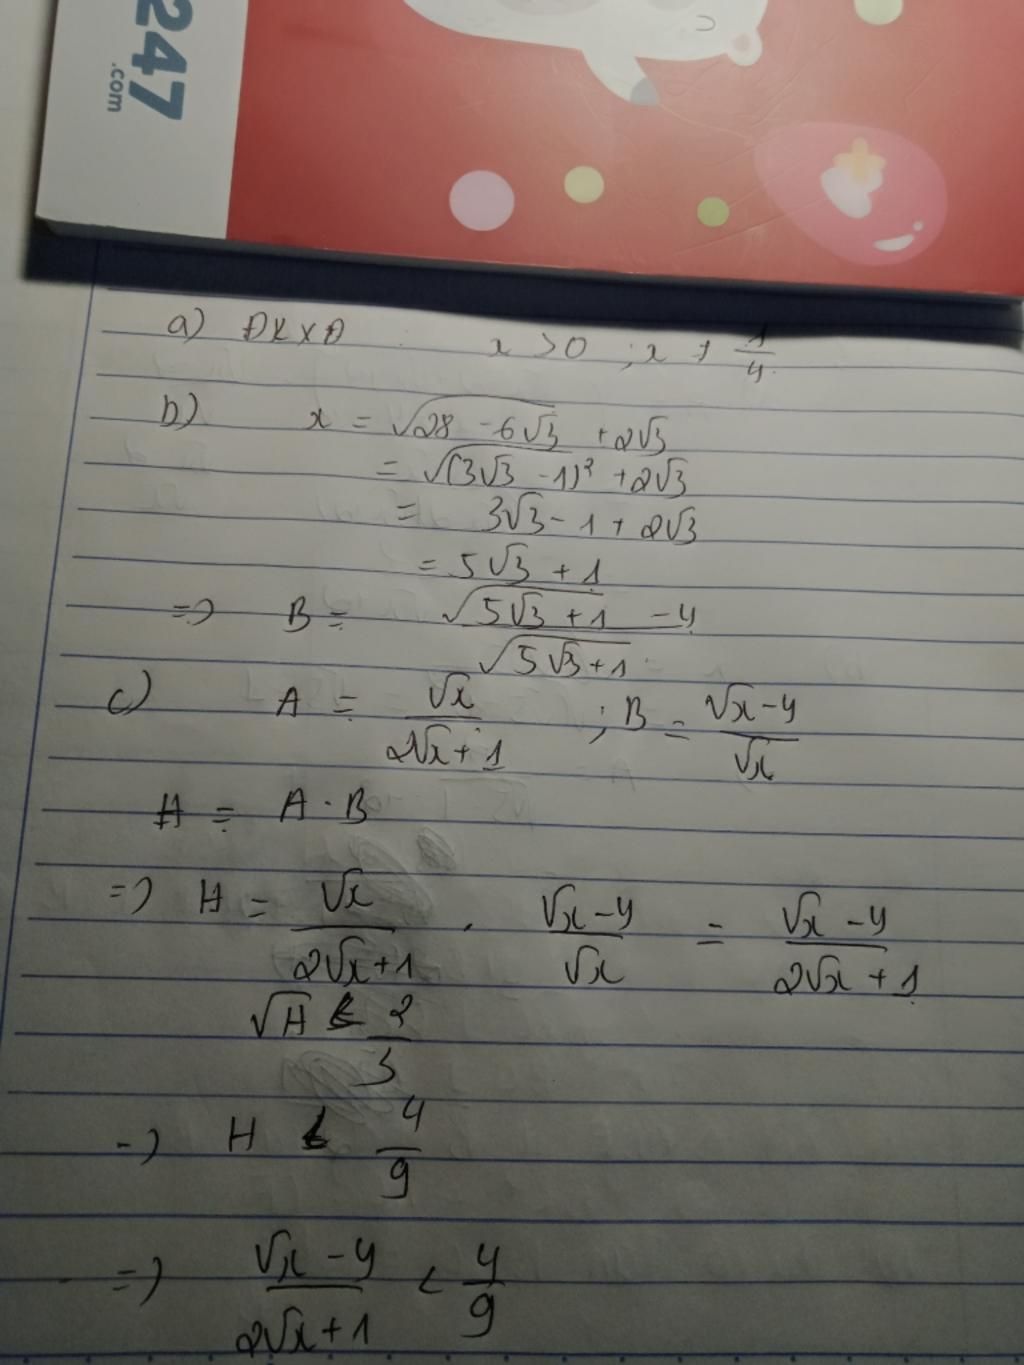 247
.com
a) ĐKXĐ x > 0 ; x ≠ 1/4
b) x = √(28 - 6√3) + 2√3
= √((3√3 - 1)²) + 2√3
= 3√3 - 1 + 2√3
= 5√3 + 1
=> B = (√(5√3 + 1) - 4)/√(5√3 + 1)
c) A = √x/(2√x + 1) ; B = (√x - 4)/√x
H = A . B
=> H = √x/(2√x + 1) . (√x - 4)/√x = (√x - 4)/(2√x + 1)
√H < 2/3
=> H < 4/9
=> (√x - 4)/(2√x + 1) < 4/9